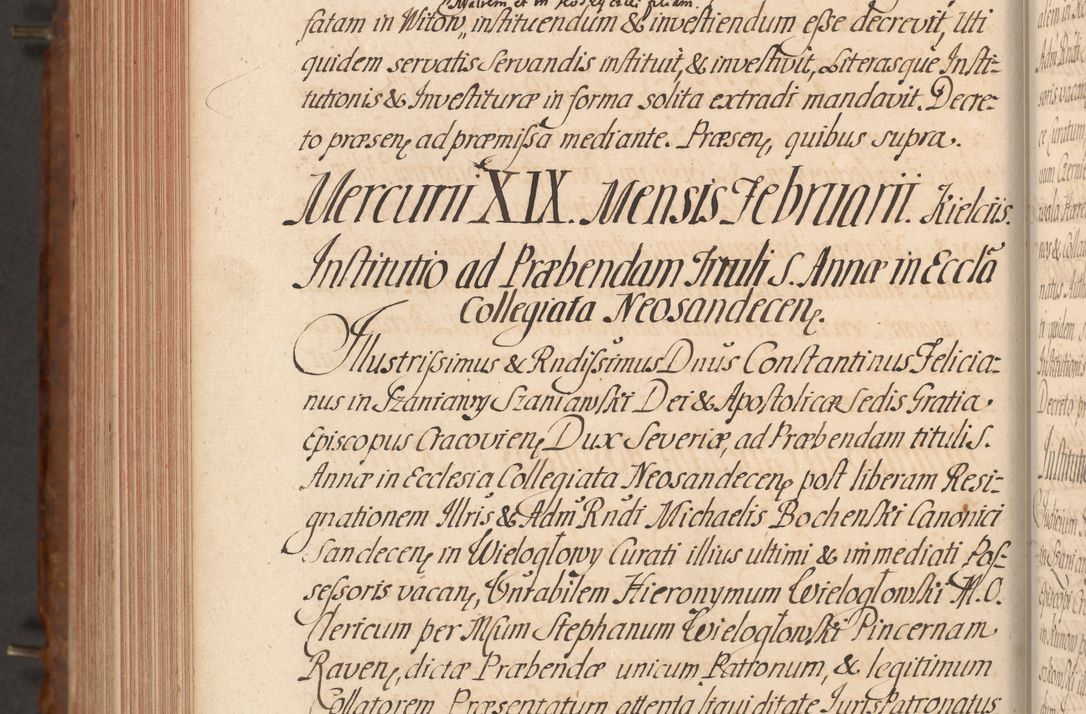 fatam in Witow, instituendum & investiendum esse decrevit, Uti
quidem servatis servandis instituit, & investivit, Literasque Insti-
tutionis & Investituræ in forma solita extradi mandavit. Decre-
to præsenę ad præmissa mediante. Præsenę, quibus supra.
Mercurii XIX. Mensis Februarii. Kielciis.
Institutio ad Præbendam Tituli S. Annæ in Eccla
Collegiata Neosandecenę.
Illustrissimus & Rndissimus Dnus Constantinus Felicia-
nus in Szaniawy Szaniawski Dei & Apostolicæ Sedis Gratia
Episcopus Cracovienę Dux Severiæ, ad Præbendam tituli S.
Annæ in Ecclesia Collegiata Neosandecenę post liberam Resi-
gnationem Illris & Adm Rndi Michaelis Bochenski Canonici
Sandecenę in Wielogłowy Curati illius ultimi & immediati Pos-
sessoris vacanę, Vntabilem Hieronymum Wielogłowski M.O.
Clericum per Msum Stephanum Wielogłowski Pincernam
Ravenę, dictæ Præbendæ unicum Patronum, & legitimum
Collatorem Præsentatum attenta liquiditate Juris Patronatus